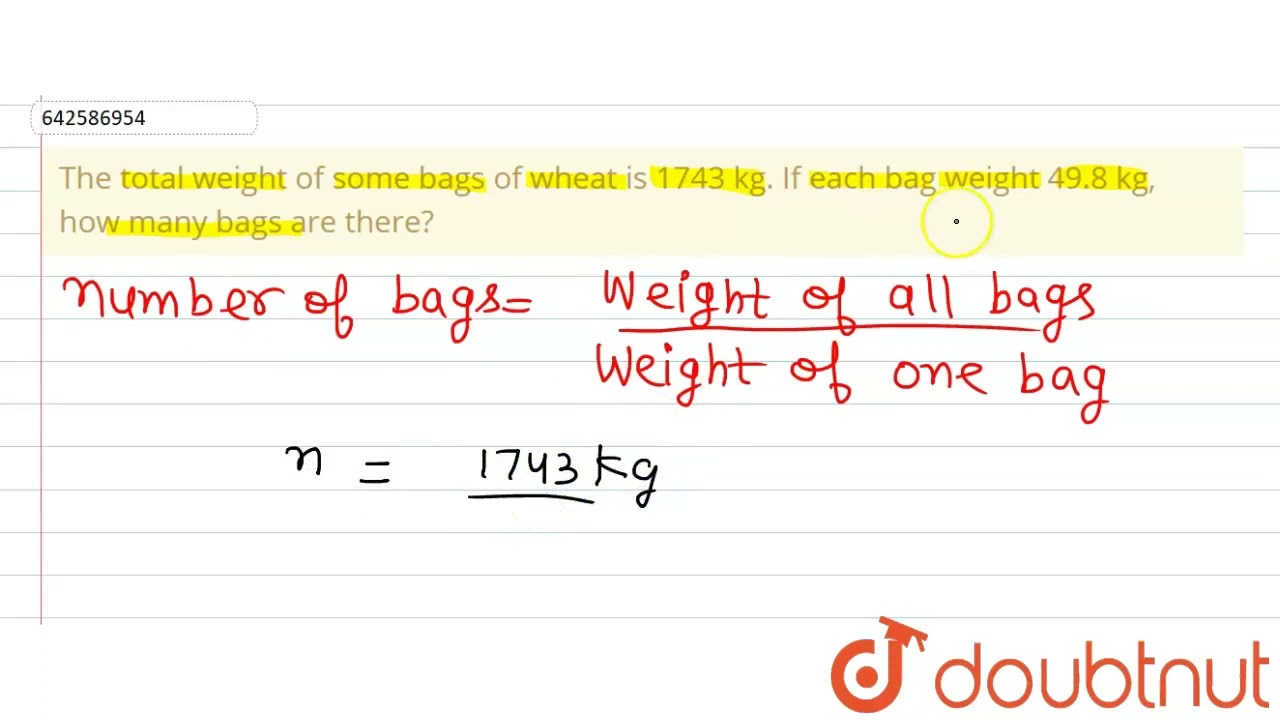 642586954
The total weight of some bags of wheat is 1743 kg. If each bag weight 49.8 kg,
how many bags are there?
Number of bags = Weight of all bags
Weight of one bag
n = 1743 kg
doubtnut